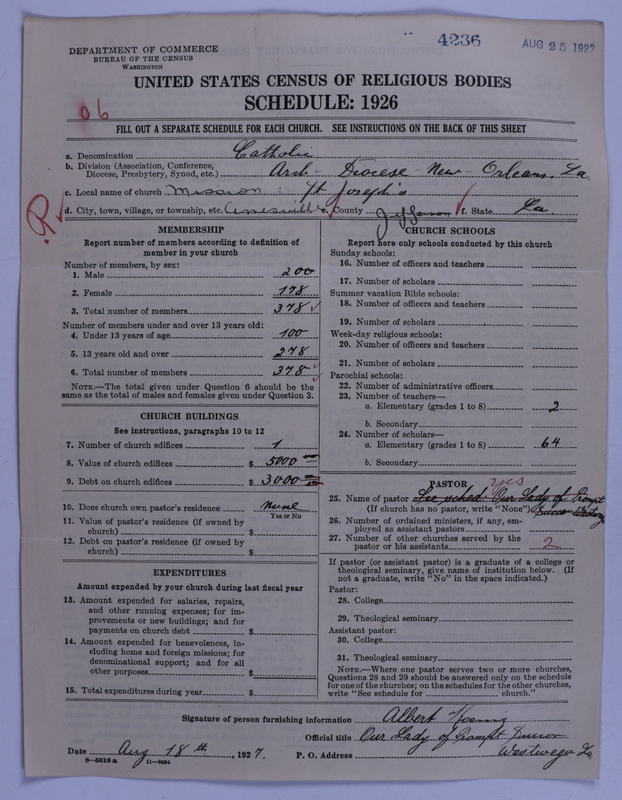 4236
AUG 25 1927
DEPARTMENT OF COMMERCE
BUREAU OF THE CENSUS
WASHINGTON
UNITED STATES CENSUS OF RELIGIOUS BODIES
SCHEDULE: 1926
06
FILL OUT A SEPARATE SCHEDULE FOR EACH CHURCH. SEE INSTRUCTIONS ON THE BACK OF THIS SHEET
a. Denomination Catholic
b. Division (Association, Conference, Diocese, Presbytery, Synod, etc.) Arch-Diocese-New-Orleans, La
c. Local name of church Mission : St Joseph's
d. City, town, village, or township, etc. e. County Jefferson f. State La.
R
MEMBERSHIP
Report number of members according to definition of
member in your church
Number of members, by sex:
1. Male 200
2. Female 178
3. Total number of members 378
Number of members under and over 13 years old:
4. Under 13 years of age 100
5. 13 years old and over 278
6. Total number of members 378
NOTE.—The total given under Question 6 should be the
same as the total of males and females given under Question 3.
CHURCH BUILDINGS
See instructions, paragraphs 10 to 12
7. Number of church edifices 1
8. Value of church edifices $ 5000
9. Debt on church edifices $ 3000
10. Does church own pastor's residence None
Yes or No
11. Value of pastor's residence (if owned by
church) $
12. Debt on pastor's residence (if owned by
church) $
EXPENDITURES
Amount expended by your church during last fiscal year
13. Amount expended for salaries, repairs,
and other running expenses; for im-
provements or new buildings; and for
payments on church debt $
14. Amount expended for benevolences, in-
cluding home and foreign missions; for
denominational support; and for all
other purposes $
15. Total expenditures during year $
CHURCH SCHOOLS
Report here only schools conducted by this church
Sunday schools:
16. Number of officers and teachers
17. Number of scholars
Summer vacation Bible schools:
18. Number of officers and teachers
19. Number of scholars
Week-day religious schools:
20. Number of officers and teachers
21. Number of scholars
Parochial schools:
22. Number of administrative officers
23. Number of teachers—
a. Elementary (grades 1 to 8) 2
b. Secondary
24. Number of scholars—
a. Elementary (grades 1 to 8) 64
b. Secondary
PASTOR
yes
25. Name of pastor See sched. Our Lady of Prompt
(If church has no pastor, write "None") Succor Westwego
26. Number of ordained ministers, if any, em-
ployed as assistant pastors
27. Number of other churches served by the
pastor or his assistants 2
If pastor (or assistant pastor) is a graduate of a college or
theological seminary, give name of institution below. (If
not a graduate, write "No" in the space indicated.)
Pastor:
28. College
29. Theological seminary
Assistant pastor:
30. College
31. Theological seminary
NOTE.—Where one pastor serves two or more churches,
Questions 28 and 29 should be answered only on the schedule
for one of the churches; on the schedules for the other churches,
write "See schedule for church."
Signature of person furnishing information Albert Koenig
Official title Our Lady of Prompt Succor
Date Aug 18th, 1927. P. O. Address Westwego La
8—5519a 11—9054